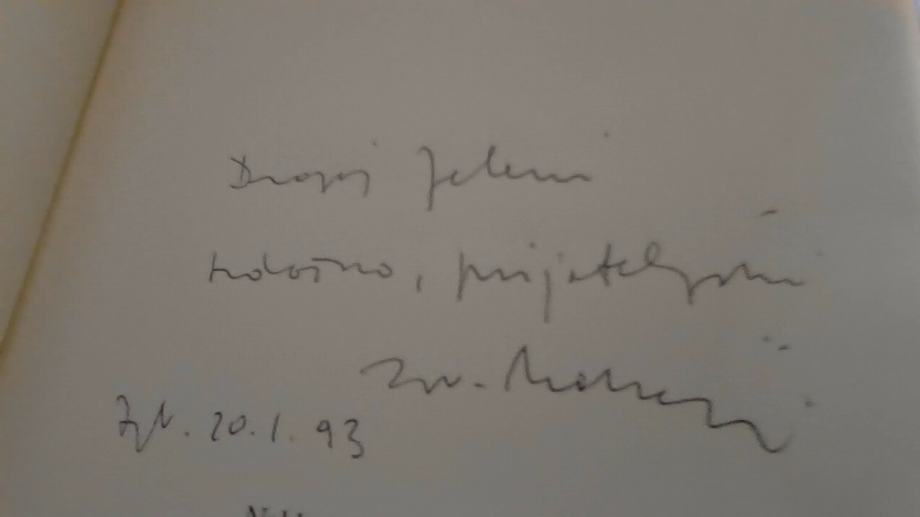 Dragoj Jeleni
srdačno, prijateljski
Zv.
Zgb. 20.1.93